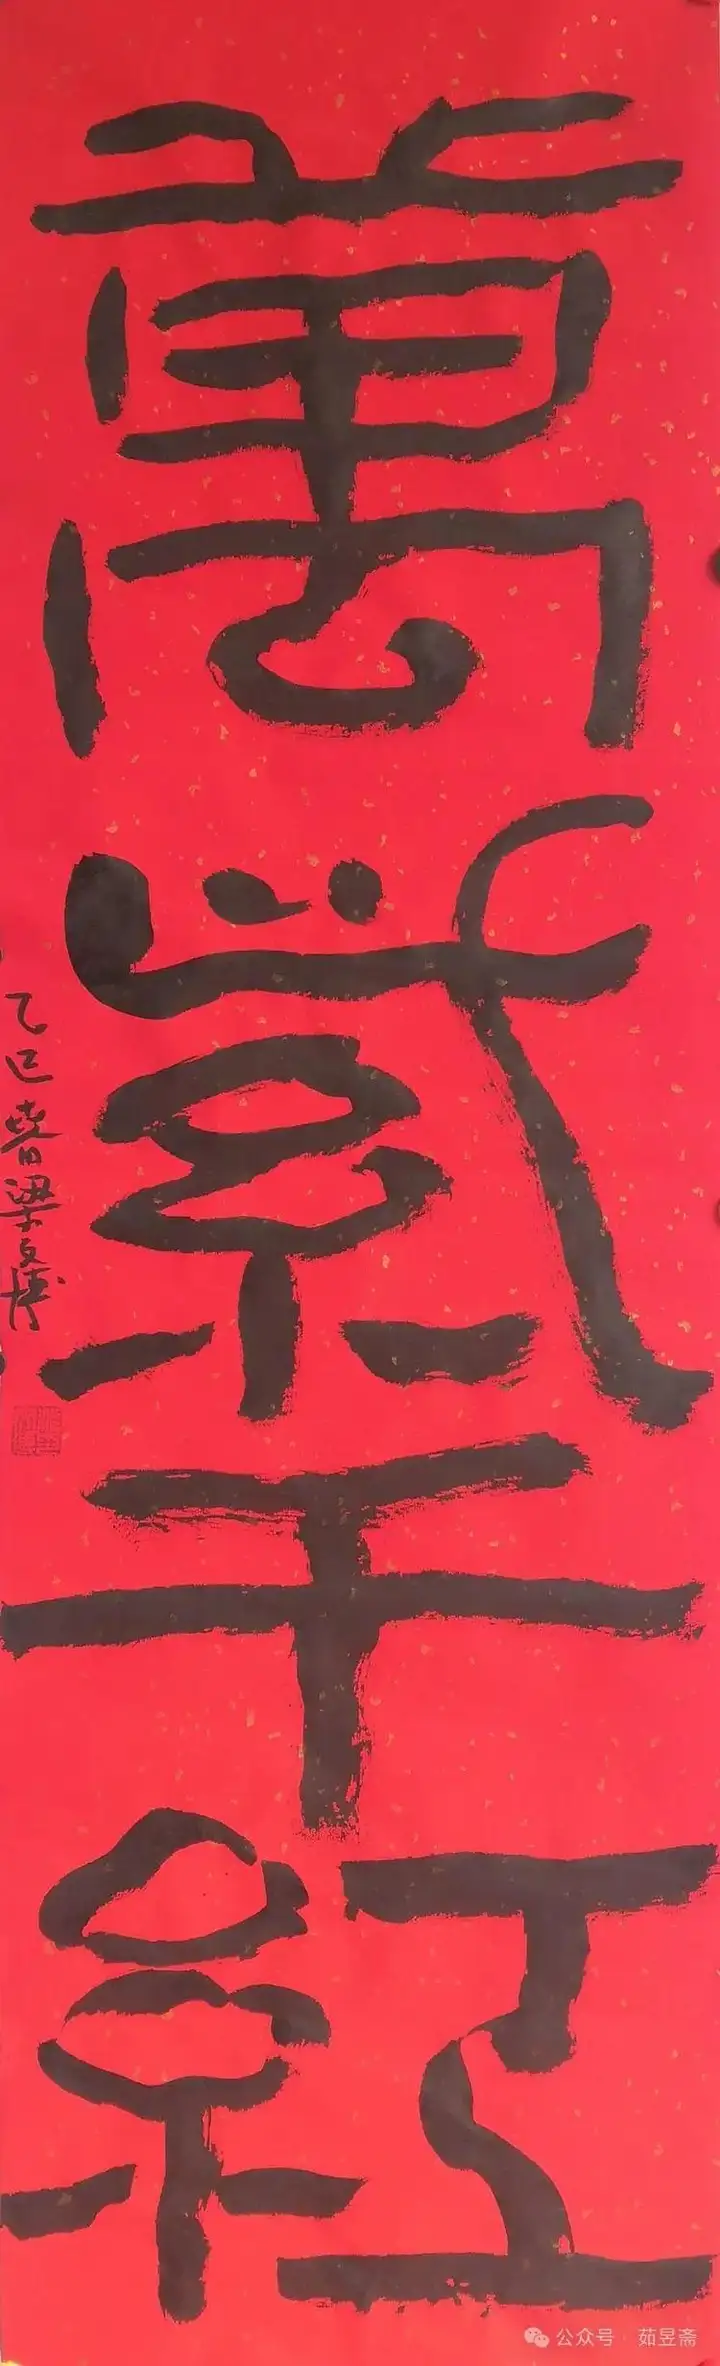 萬紫千紅
乙巳春梁文博
公众号·茹昱斋